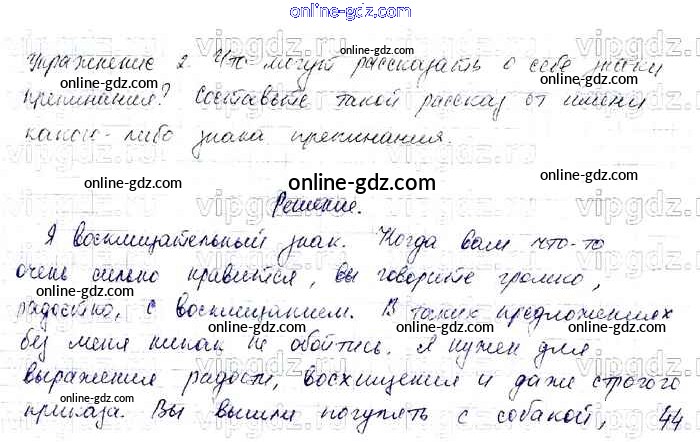 online-gdz.com
Упражнение 2. Что могут рассказать о себе знаки
online-gdz.com online-gdz.com online-gdz.com
препинания? Составьте такой рассказ от имени
какого-либо знака препинания.
online-gdz.com online-gdz.com online-gdz.com
Решение.
Я восклицательный знак. Когда вам что-то
online-gdz.com online-gdz.com
очень сильно нравится, вы говорите громко,
радостно, с восклицанием. В таких предложениях
online-gdz.com online-gdz.com online-gdz.com
без меня никак не обойтись. Я нужен для
online-gdz.com online-gdz.com online-gdz.com
выражения радости, восхищения и даже строгого
приказа. Вы вышли погулять с собакой, 44
online-gdz.com online-gdz.com online-gdz.com